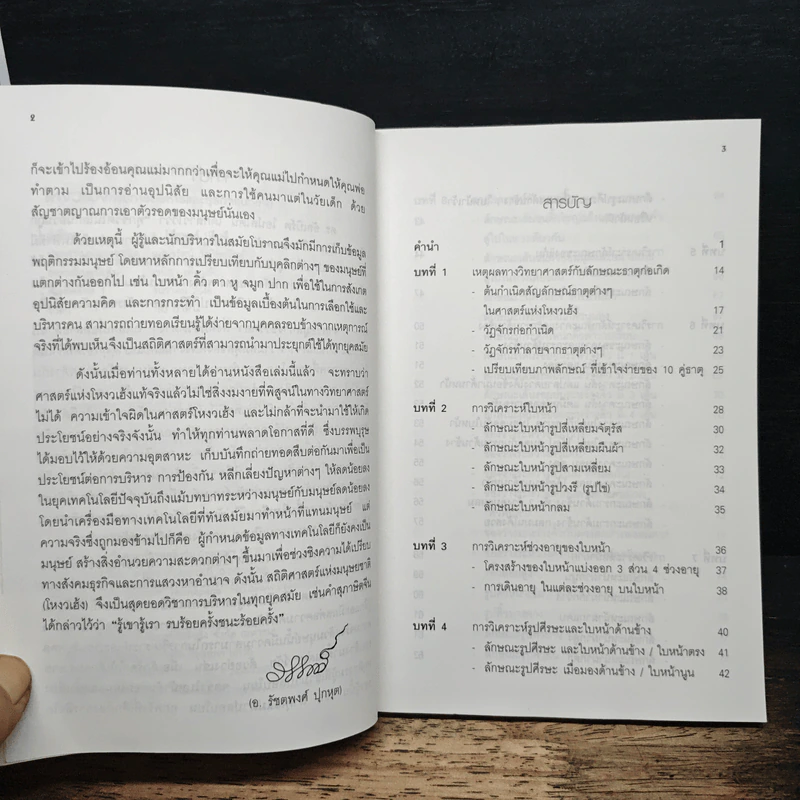 ๒
ก็จะเข้าไปร้องอ้อนคุณแม่มากกว่าเพื่อจะให้คุณแม่ไปกำหนดให้คุณพ่อ
ทำตาม เป็นการอ่านอุปนิสัย และการใช้คนมาแต่ในวัยเด็ก ด้วย
สัญชาตญาณการเอาตัวรอดของมนุษย์นั่นเอง
ด้วยเหตุนี้ ผู้รู้และนักบริหารในสมัยโบราณจึงมักมีการเก็บข้อมูล
พฤติกรรมมนุษย์ โดยหาหลักการเปรียบเทียบกับบุคลิกต่างๆ ของมนุษย์ที่
แตกต่างกันออกไป เช่น ใบหน้า คิ้ว ตา หู จมูก ปาก เพื่อใช้ในการสังเกต
อุปนิสัยความคิด และการกระทำ เป็นข้อมูลเบื้องต้นในการเลือกใช้และ
บริหารคน สามารถถ่ายทอดเรียนรู้ได้ง่ายจากบุคคลรอบข้างจากเหตุการณ์
จริงที่ได้พบเห็นจึงเป็นสถิติศาสตร์ที่สามารถนำมาประยุกต์ใช้ได้ทุกยุคสมัย
ดังนั้นเมื่อท่านทั้งหลายได้อ่านหนังสือเล่มนี้แล้ว จะทราบว่า
ศาสตร์แห่งโหงวเฮ้งแท้จริงแล้วไม่ใช่สิ่งงมงายที่พิสูจน์ในทางวิทยาศาสตร์
ไม่ได้ ความเข้าใจผิดในศาสตร์โหงวเฮ้ง และไม่กล้าที่จะนำมาใช้ให้เกิด
ประโยชน์อย่างจริงจังนั้น ทำให้ทุกท่านพลาดโอกาสที่ดี ซึ่งบรรพบุรุษ
ได้มอบไว้ให้ด้วยความอุตสาหะ เก็บบันทึกถ่ายทอดสืบต่อกันมาเพื่อเป็น
ประโยชน์ต่อการบริหาร การป้องกัน หลีกเลี่ยงปัญหาต่างๆ ให้ลดน้อยลง
ในยุคเทคโนโลยีปัจจุบันถึงแม้บทบาทระหว่างมนุษย์กับมนุษย์ลดน้อยลง
โดยนำเครื่องมือทางเทคโนโลยีที่ทันสมัยมาทำหน้าที่แทนมนุษย์ แต่
ความจริงซึ่งถูกมองข้ามไปก็คือ ผู้กำหนดข้อมูลทางเทคโนโลยีก็ยังคงเป็น
มนุษย์ สร้างสิ่งอำนวยความสะดวกต่างๆ ขึ้นมาเพื่อช่วงชิงความได้เปรียบ
ทางสังคมธุรกิจและการแสวงหาอำนาจ ดังนั้น สถิติศาสตร์แห่งมนุษยชาติ
(โหงวเฮ้ง) จึงเป็นสุดยอดวิชาการบริหารในทุกยุคสมัย เช่นคำสุภาษิตจีน
ได้กล่าวไว้ว่า "รู้เขารู้เรา รบร้อยครั้งชนะร้อยครั้ง"
(อ. รัชตพงศ์ ปุกหุต)
3
สารบัญ
คำนำ 1
บทที่ 1 เหตุผลทางวิทยาศาสตร์กับลักษณะธาตุก่อเกิด 14
- ต้นกำเนิดสัญลักษณ์ธาตุต่างๆ
ในศาสตร์แห่งโหงวเฮ้ง 17
- วัฏจักรก่อกำเนิด 21
- วัฏจักรทำลายจากธาตุต่างๆ 23
- เปรียบเทียบภาพลักษณ์ ที่เข้าใจง่ายของ 10 คู่ธาตุ 25
บทที่ 2 การวิเคราะห์ใบหน้า 28
- ลักษณะใบหน้ารูปสี่เหลี่ยมจัตุรัส 30
- ลักษณะใบหน้ารูปสี่เหลี่ยมผืนผ้า 32
- ลักษณะใบหน้ารูปสามเหลี่ยม 33
- ลักษณะใบหน้ารูปวงรี (รูปไข่) 34
- ลักษณะใบหน้ากลม 35
บทที่ 3 การวิเคราะห์ช่วงอายุของใบหน้า 36
- โครงสร้างของใบหน้าแบ่งออก 3 ส่วน 4 ช่วงอายุ 37
- การเดินอายุ ในแต่ละช่วงอายุ บนใบหน้า 38
บทที่ 4 การวิเคราะห์รูปศีรษะและใบหน้าด้านข้าง 40
- ลักษณะรูปศีรษะ และใบหน้าด้านข้าง / ใบหน้าตรง 41
- ลักษณะรูปศีรษะ เมื่อมองด้านข้าง / ใบหน้านูน 42